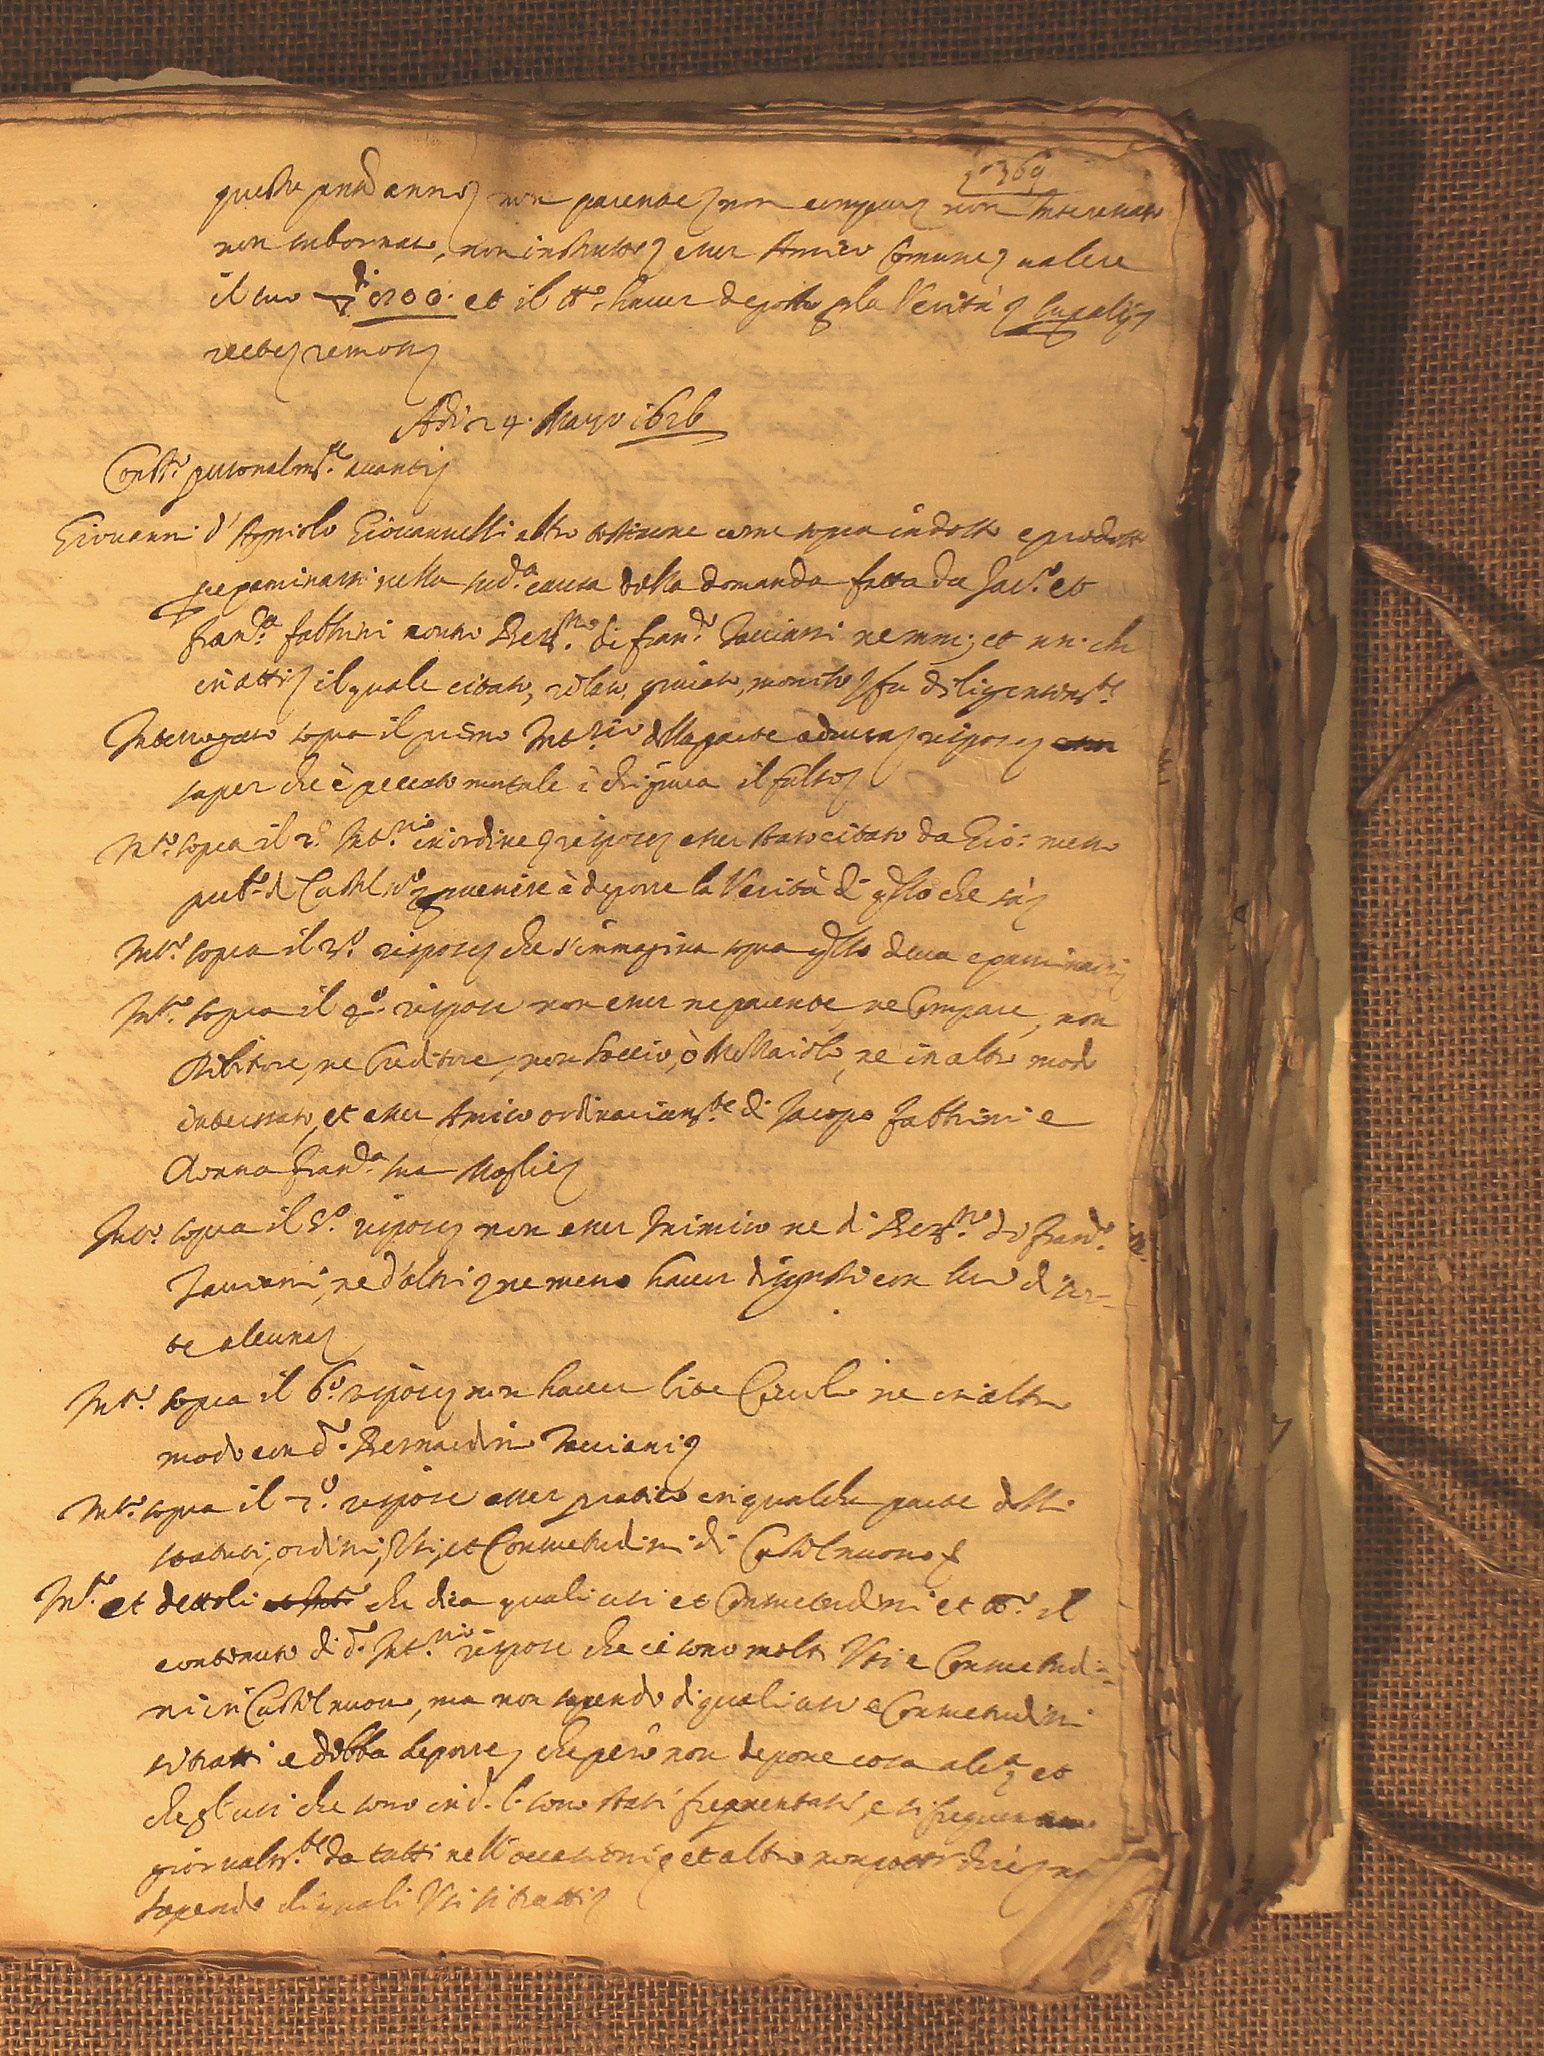 369
questo pred anno, non parente, non compare, non interessato
non subornato, non instrutto, esser Amico Comune, valere
il suo di 200. et il tto. haver deposto p la Verità,
recte, remoto
Adi 24. Marzo 1626
Constto. personalmte. avanti
Giovanni d'Agniolo Giovannelli altro testimone come sopra indotto e prodotto
p esaminarsi nella sudª causa della domanda fatta da Jacº. et
Franª Fabbrini contro Berno. di Francº Tacciani nemm; et un. che
in atti, il quale citato, giurato, monito, fu diligentemte.
Interrogato sopra il primo Intrio della parte adversa, rispose,
saper che è peccato mortale à chi giura il falso,
Intº. sopra il 2º. Intrio. in ordine, rispose, esser stato citato da Gio: messo
pubº. di Castel nº p venire à deporre la Verità di qllo che sà,
Intº. sopra il 3º. rispose, che s'immagina sopra qllo deva esaminarsi,
Intº. sopra il 4º. rispose non esser ne parente, ne Compare, non
Debitore, ne Creditore, non Soccio, ò Mezzaiolo, ne in altro modo
interessato, et esser Amico ordinariamte di Jacopo Fabbrini e
Donna Franª sua Moglie,
Intº. sopra il 5º. rispose, non esser Inimico ne di Berno. di Francº.
Tacciani, ne d'altri, ne meno haver disgusto con lui di sor-
te alcuna,
Intº. sopra il 6º. rispose, non haver lite Civile ne in altro
modo con dº. Bernardino Tacciani,
Intº. sopra il 7º. rispose esser pratico in qualche parte delli
statuti, ordini, Usi, et Consuetudini di Castelnuovo,
Intº. et dettoli che dica quali usi et Consuetudini et tto. il
contenuto di dº. Intrio rispose che ci sono molti Usi e Consuetudi=
ni in Castelnuovo, ma non sapendo di quali usi e Consuetudini
si tratti e debba deporre, che però non depone cosa alcª, et
che gl'usi che sono in d. lº. sono stati frequentati, e si frequentano
giornalmte. da tutti nell'occasioni, et altro non poter dire, no
sapendo di quali Usi si tratti,